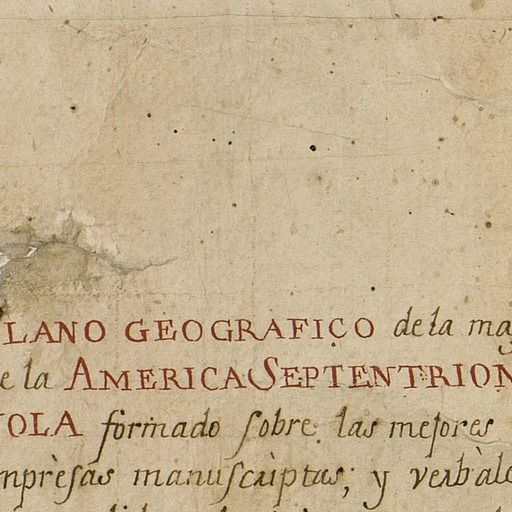 LANO GEOGRAFICO de la ma
e la AMERICA SEPTENTRION
OLA formado sobre las mejores
mprèsas manuscriptas; y verbàle